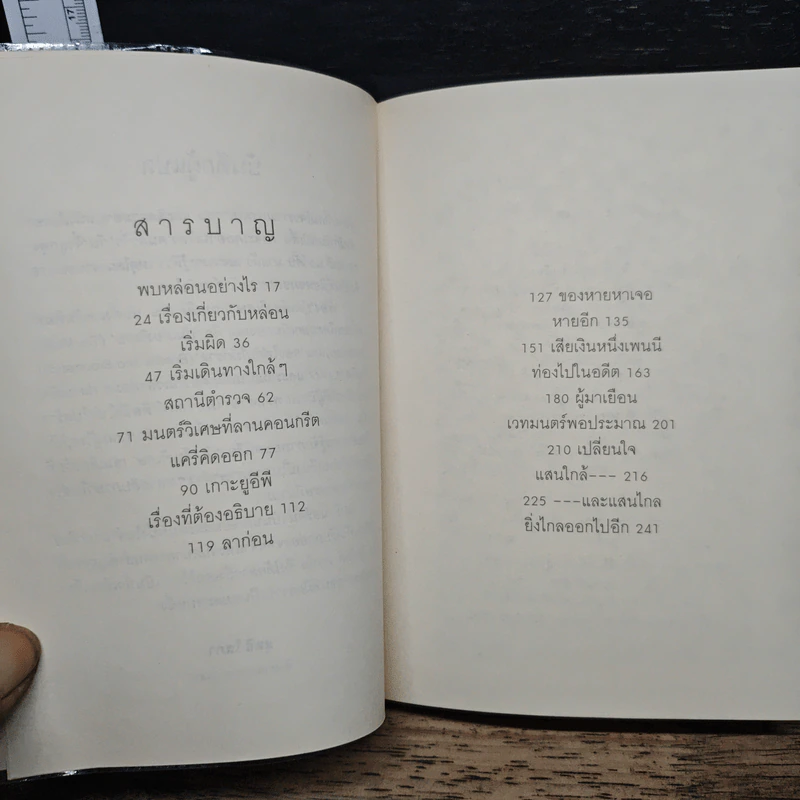 17
สารบาญ
พบหล่อนอย่างไร 17
24 เรื่องเกี่ยวกับหล่อน
เริ่มผิด 36
47 เริ่มเดินทางใกล้ๆ
สถานีตำรวจ 62
71 มนตร์วิเศษที่ลานคอนกรีต
แครี่คิดออก 77
90 เกาะยูอีพี
เรื่องที่ต้องอธิบาย 112
119 ลาก่อน
127 ของหายหาเจอ
หายอีก 135
151 เสียเงินหนึ่งเพนนี
ท่องไปในอดีต 163
180 ผู้มาเยือน
เวทมนตร์พอประมาณ 201
210 เปลี่ยนใจ
แสนใกล้--- 216
225 ---และแสนไกล
ยิ่งไกลออกไปอีก 241